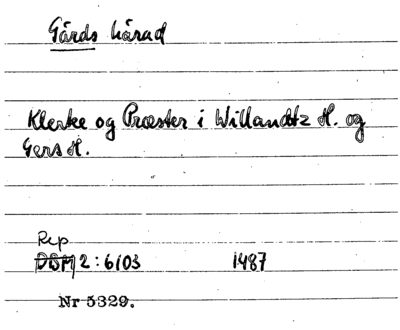 Gärds härad
Klerke og Præster i Willandtz H. og
Gers H.
Rep
DBM 2:6103 1487
Nr 5329.